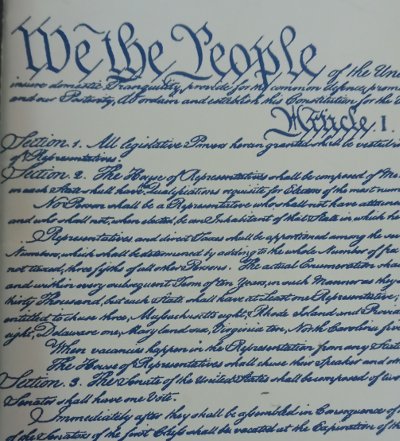 We the People of the Unit
insure domestic Tranquility, provide for the common defence, promo
and our Posterity, do ordain and establish this Constitution for the
Article I.
Section 1. All legislative Powers herein granted shall be vested in
of Representatives
Section 2. The House of Representatives shall be composed of Me
in each State shall have Qualifications requisite for Electors of the most num
No Person shall be a Representative who shall not have attaine
and who shall not, when elected, be an Inhabitant of that State in which he
Representatives and direct Taxes shall be apportioned among the se
Numbers, which shall be determined by adding to the whole Number of fre
not taxed, three fifths of all other Persons. The actual Enumeration shal
and within every subsequent Term of ten Years, in such Manner as they
thirty Thousand, but each State shall have at Least one Representative;
entitled to chuse three, Massachusetts eight, Rhode Island and Provid
eight, Delaware one, Maryland six, Virginia ten, North Carolina five,
When vacancies happen in the Representation from any State
The House of Representatives shall chuse their Speaker and oth
Section. 3. The Senate of the United States shall be composed of two
Senator shall have one Vote.
Immediately after they shall be assembled in Consequence of
of the Senators of the first Class shall be vacated at the Expiration of th